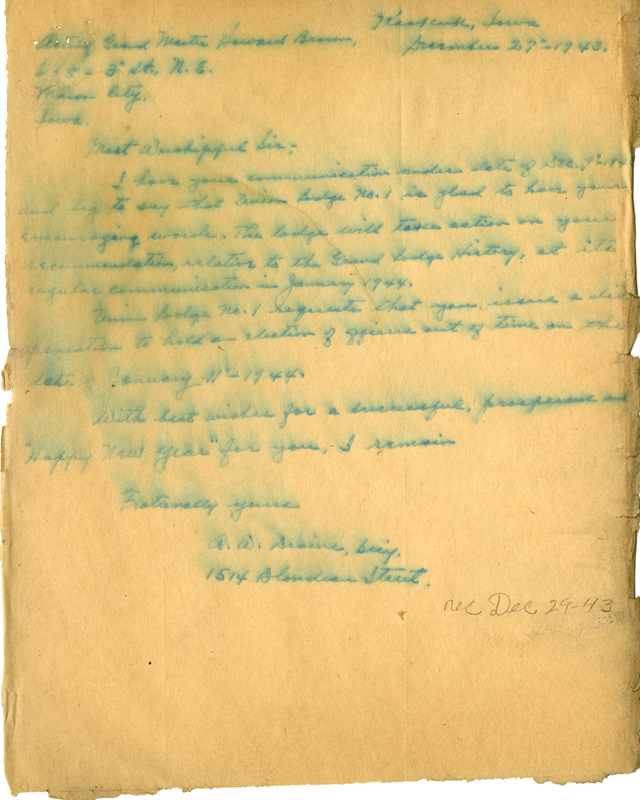 Keokuk, Iowa
Acting Grand Master Howard Brown, December 27"-1943.
St. N. E.
Mason City,
Iowa.
Most Worshipful Sir:-
I have your communication under date of Dec. 9"
and beg to say that Union Lodge No. 1 is glad to have your
encouraging words. The lodge will take action on your
recommendation, relative to the Grand Lodge History, at its
regular communication in January 1944.
Union Lodge No. 1 requests that you issue a dis
pensation to hold an election of officers out of time on the
date of January 11"-1944.
With best wishes for a successful, prosperous and
"Happy New Year" for you, I remain
Fraternally yours
A. W. Secy.
1514 Blondeau Street.
rec Dec 29-43